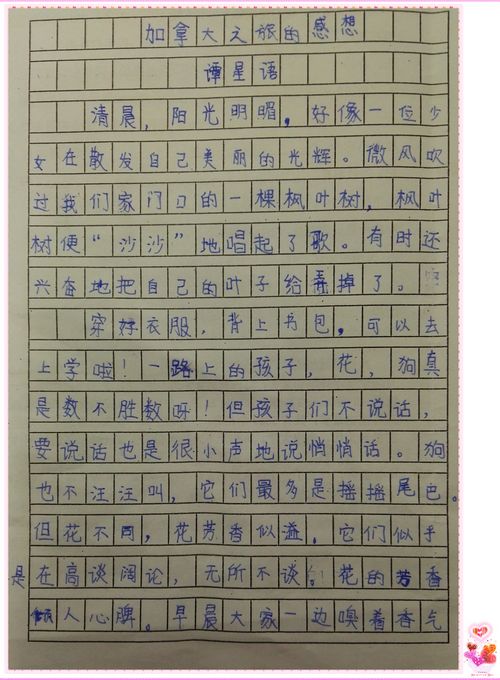 加拿大之旅的感想
谭星语
清晨，阳光明媚，好像一位少
女在散发自己美丽的光辉。微风吹
过我们家门口的一棵枫叶树，枫叶
树便“沙沙”地唱起了歌。有时还
兴奋地把自己的叶子给弄掉了。
穿好衣服，背上书包，可以去
上学啦！一路上的孩子，花，狗真
是数不胜数呀！但孩子们不说话，
要说话也是很小声地说悄悄话。狗
也不汪汪叫，它们最多是摇摇尾巴。
但花不同，花芳香似溢，它们似乎
是在高谈阔论，无所不谈。花的芳香
倾人心脾。早晨大家一边嗅着香气